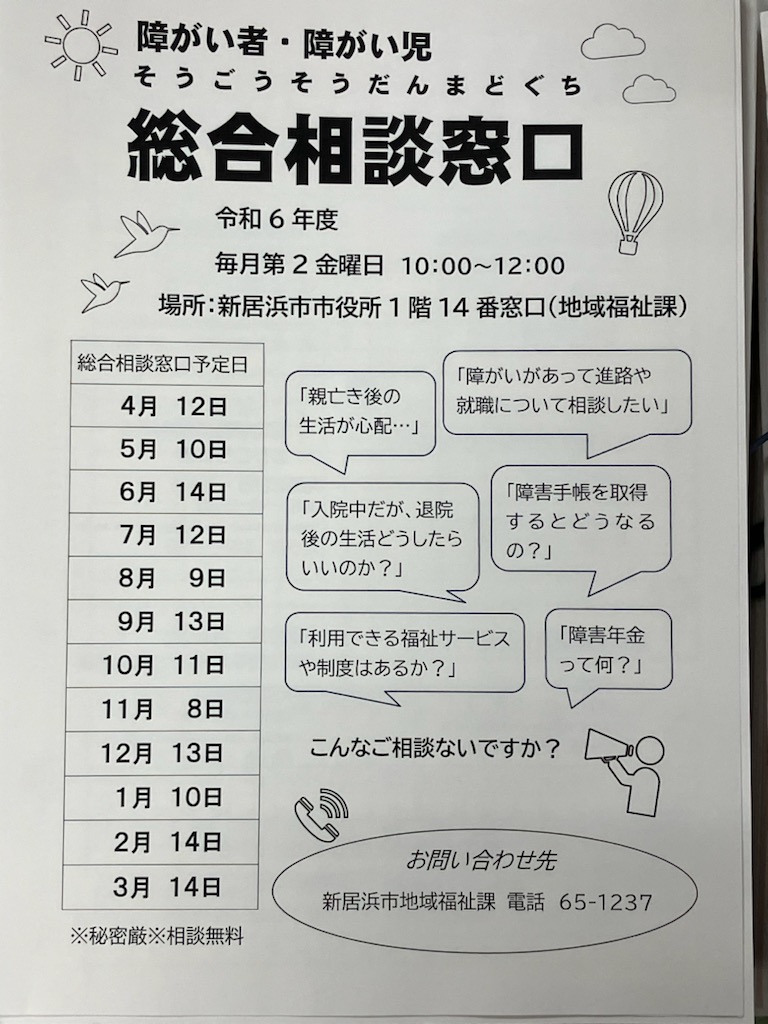 障がい者・障がい児
そうごうそうだんまどぐち
総合相談窓口
令和6年度
毎月第2金曜日 10:00～12:00
場所：新居浜市市役所1階14番窓口（地域福祉課）
総合相談窓口予定日
4月 12日
5月 10日
6月 14日
7月 12日
8月 9日
9月 13日
10月 11日
11月 8日
12月 13日
1月 10日
2月 14日
3月 14日
※秘密厳※相談無料
「親亡き後の
生活が心配…」
「障がいがあって進路や
就職について相談したい」
「入院中だが、退院
後の生活どうしたら
いいのか？」
「障害手帳を取得
するとどうなる
の？」
「利用できる福祉サービス
や制度はあるか？」
「障害年金
って何？」
こんなご相談ないですか？
お問い合わせ先
新居浜市地域福祉課 電話 65-1237